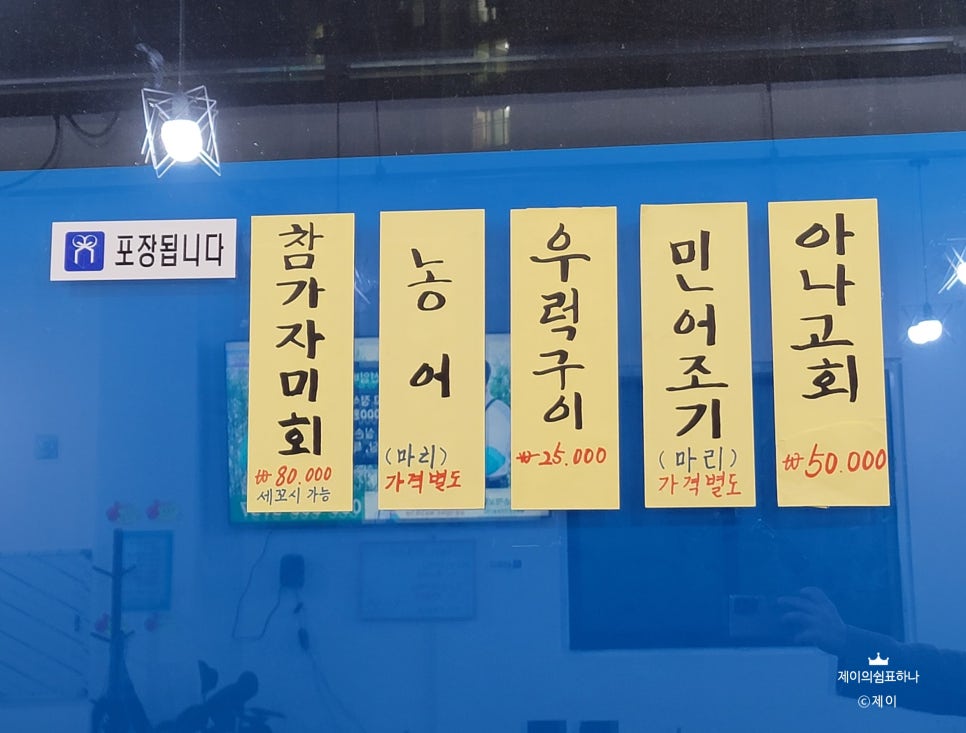 포장됩니다
참가자미회
₩80.000
세꼬시 가능
농어
(마리)
가격별도
우럭구이
₩25.000
민어조기
(마리)
가격별도
아나고회
₩50.000
제이의쉼표하나
©제이